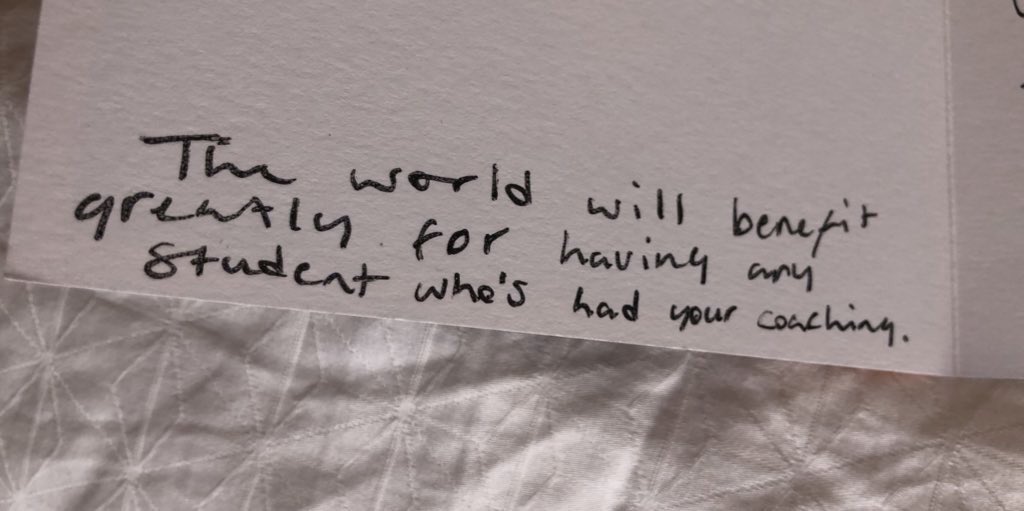 The world will benefit
greatly for having any
student who's had your coaching.